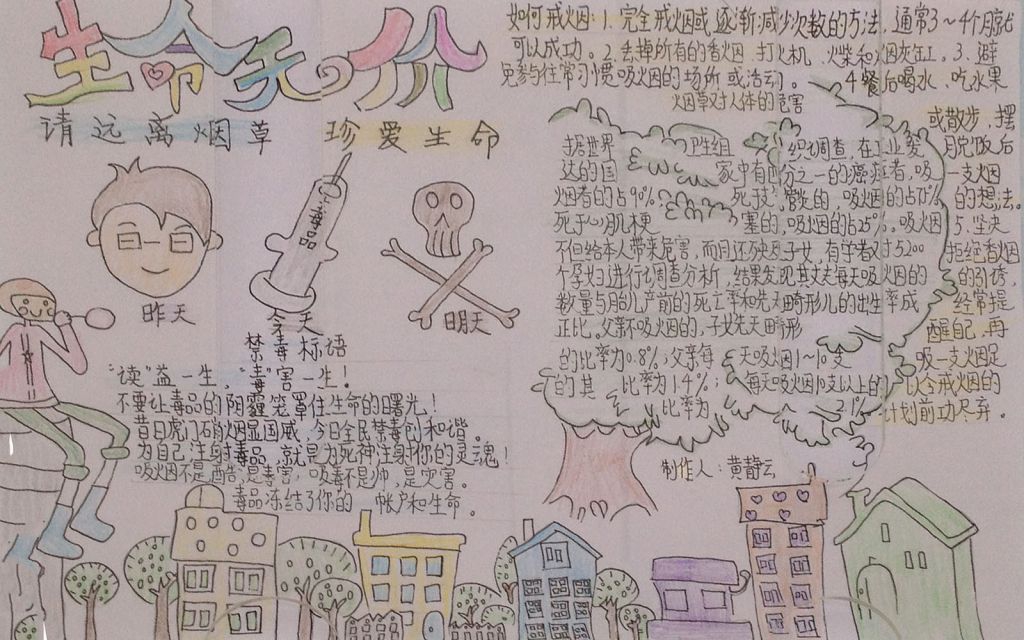 生命无价
请远离烟草 珍爱生命
昨天
毒品
今天
明天
禁毒标语
“读”益一生，“毒”害一生！
不要让毒品的阴霾笼罩住生命的曙光！
昔日虎门硝烟显国威，今日全民禁毒创和谐。
为自己注射毒品，就是为死神注射你的灵魂！
吸烟不是酷，是毒害，吸毒不是帅，是灾害。
毒品冻结了你的 帐户和生命。
如何戒烟 1.完全戒烟或逐渐减少次数的方法，通常3～4个月就
可以成功。2.丢掉所有的香烟、打火机、火柴和烟灰缸。3.避
免参与往常习惯吸烟的场所或活动。 4.餐后喝水、吃水果
或散步，摆
脱饭后
一支烟
的想法。
5.坚决
拒绝香烟
的引诱，
经常提
醒自己，再
吸一支烟足
以令戒烟的
计划前功尽弃。
烟草对人体的危害
据世界 卫生组 织调查，在工业发
达的国 家中有四分之一的癌症者，吸
烟者的占90% 死于 的、吸烟的占75%
死于心肌梗 塞的，吸烟的占25%。吸烟
不但给本人带来危害，而且还殃及子女，有学者对5200
个孕妇进行调查分析，结果发现其丈夫每天吸烟的
数量与胎儿产前的死亡率和先天畸形儿的出生率成
正比。父亲不吸烟的，子女先天畸形
的比率为0.8%；父亲每 天吸烟1～10支
的其 比率为1.4%； 每天吸烟10支以上的
比率为 2.1%
制作人：黄静云